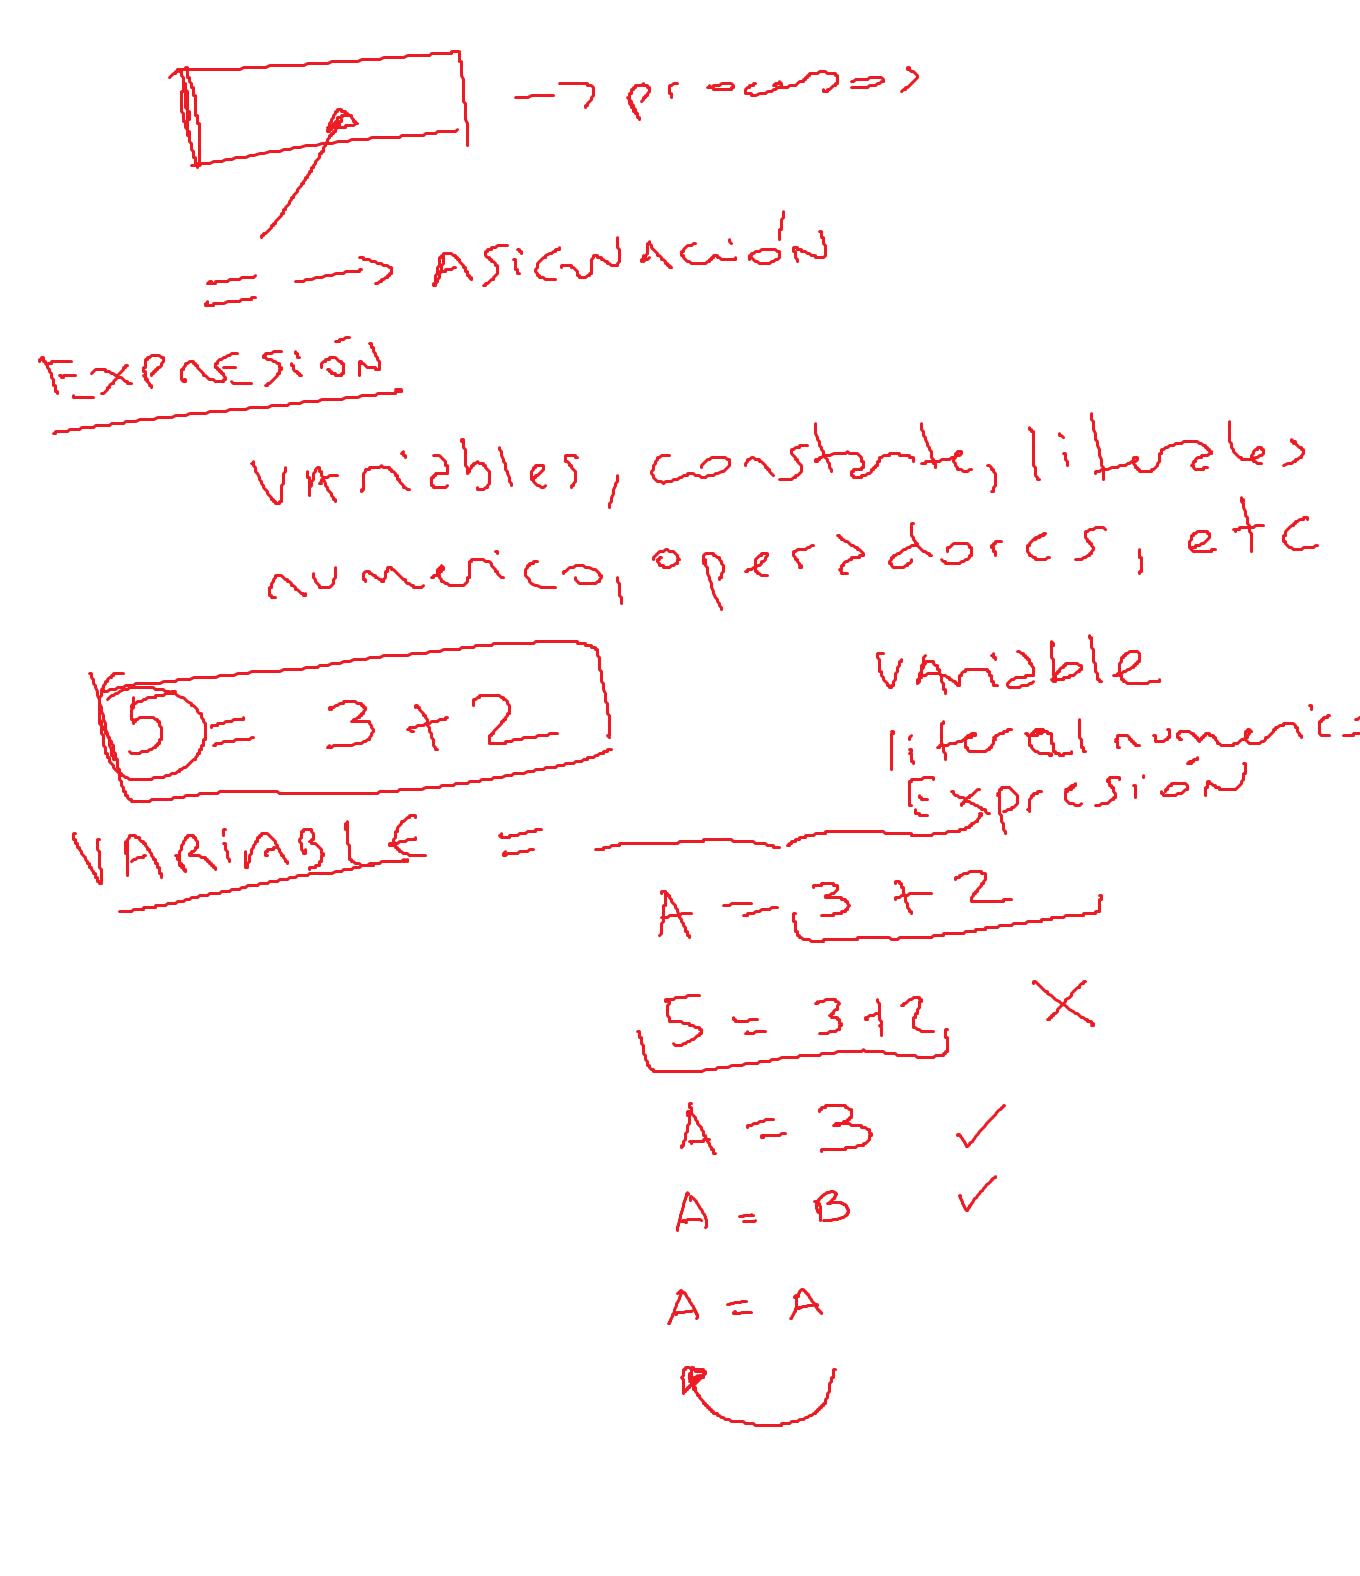 → procesos
= → ASIGNACIÓN
EXPRESIÓN
VARiables, constante, literales
numerico, operadores, etc
5 = 3 + 2
VARiable
literal numerico
Expresión
VARIABLE =
A = 3 + 2
5 = 3+2 X
A = 3 ✓
A = B ✓
A = A